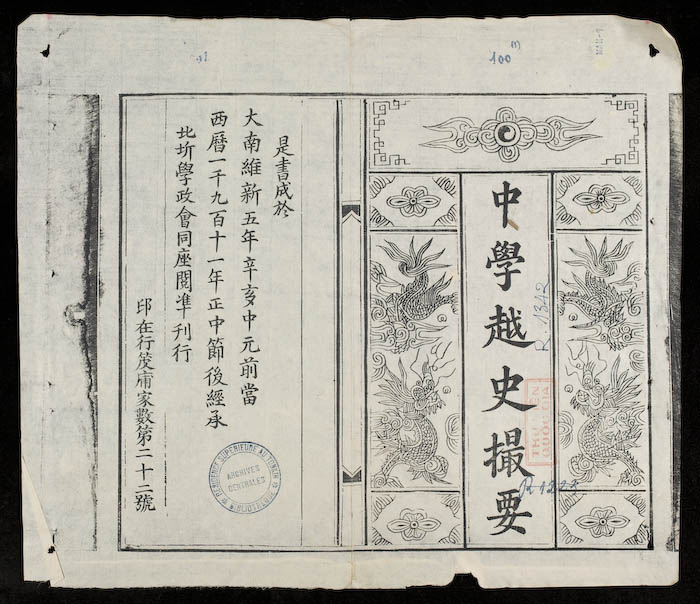 中學越史撮要
是書成於
大南維新五年辛亥中元前當
西曆一千九百十一年正中節後經承
北圻學政會同座閱準刊行
印在行笅庯家數第二十二號
100
R. 1342
THU VIEN
QUOC GIA
R. 1223
RESIDENCE SUPERIEURE AU TONKIN
ARCHIVES
CENTRALES